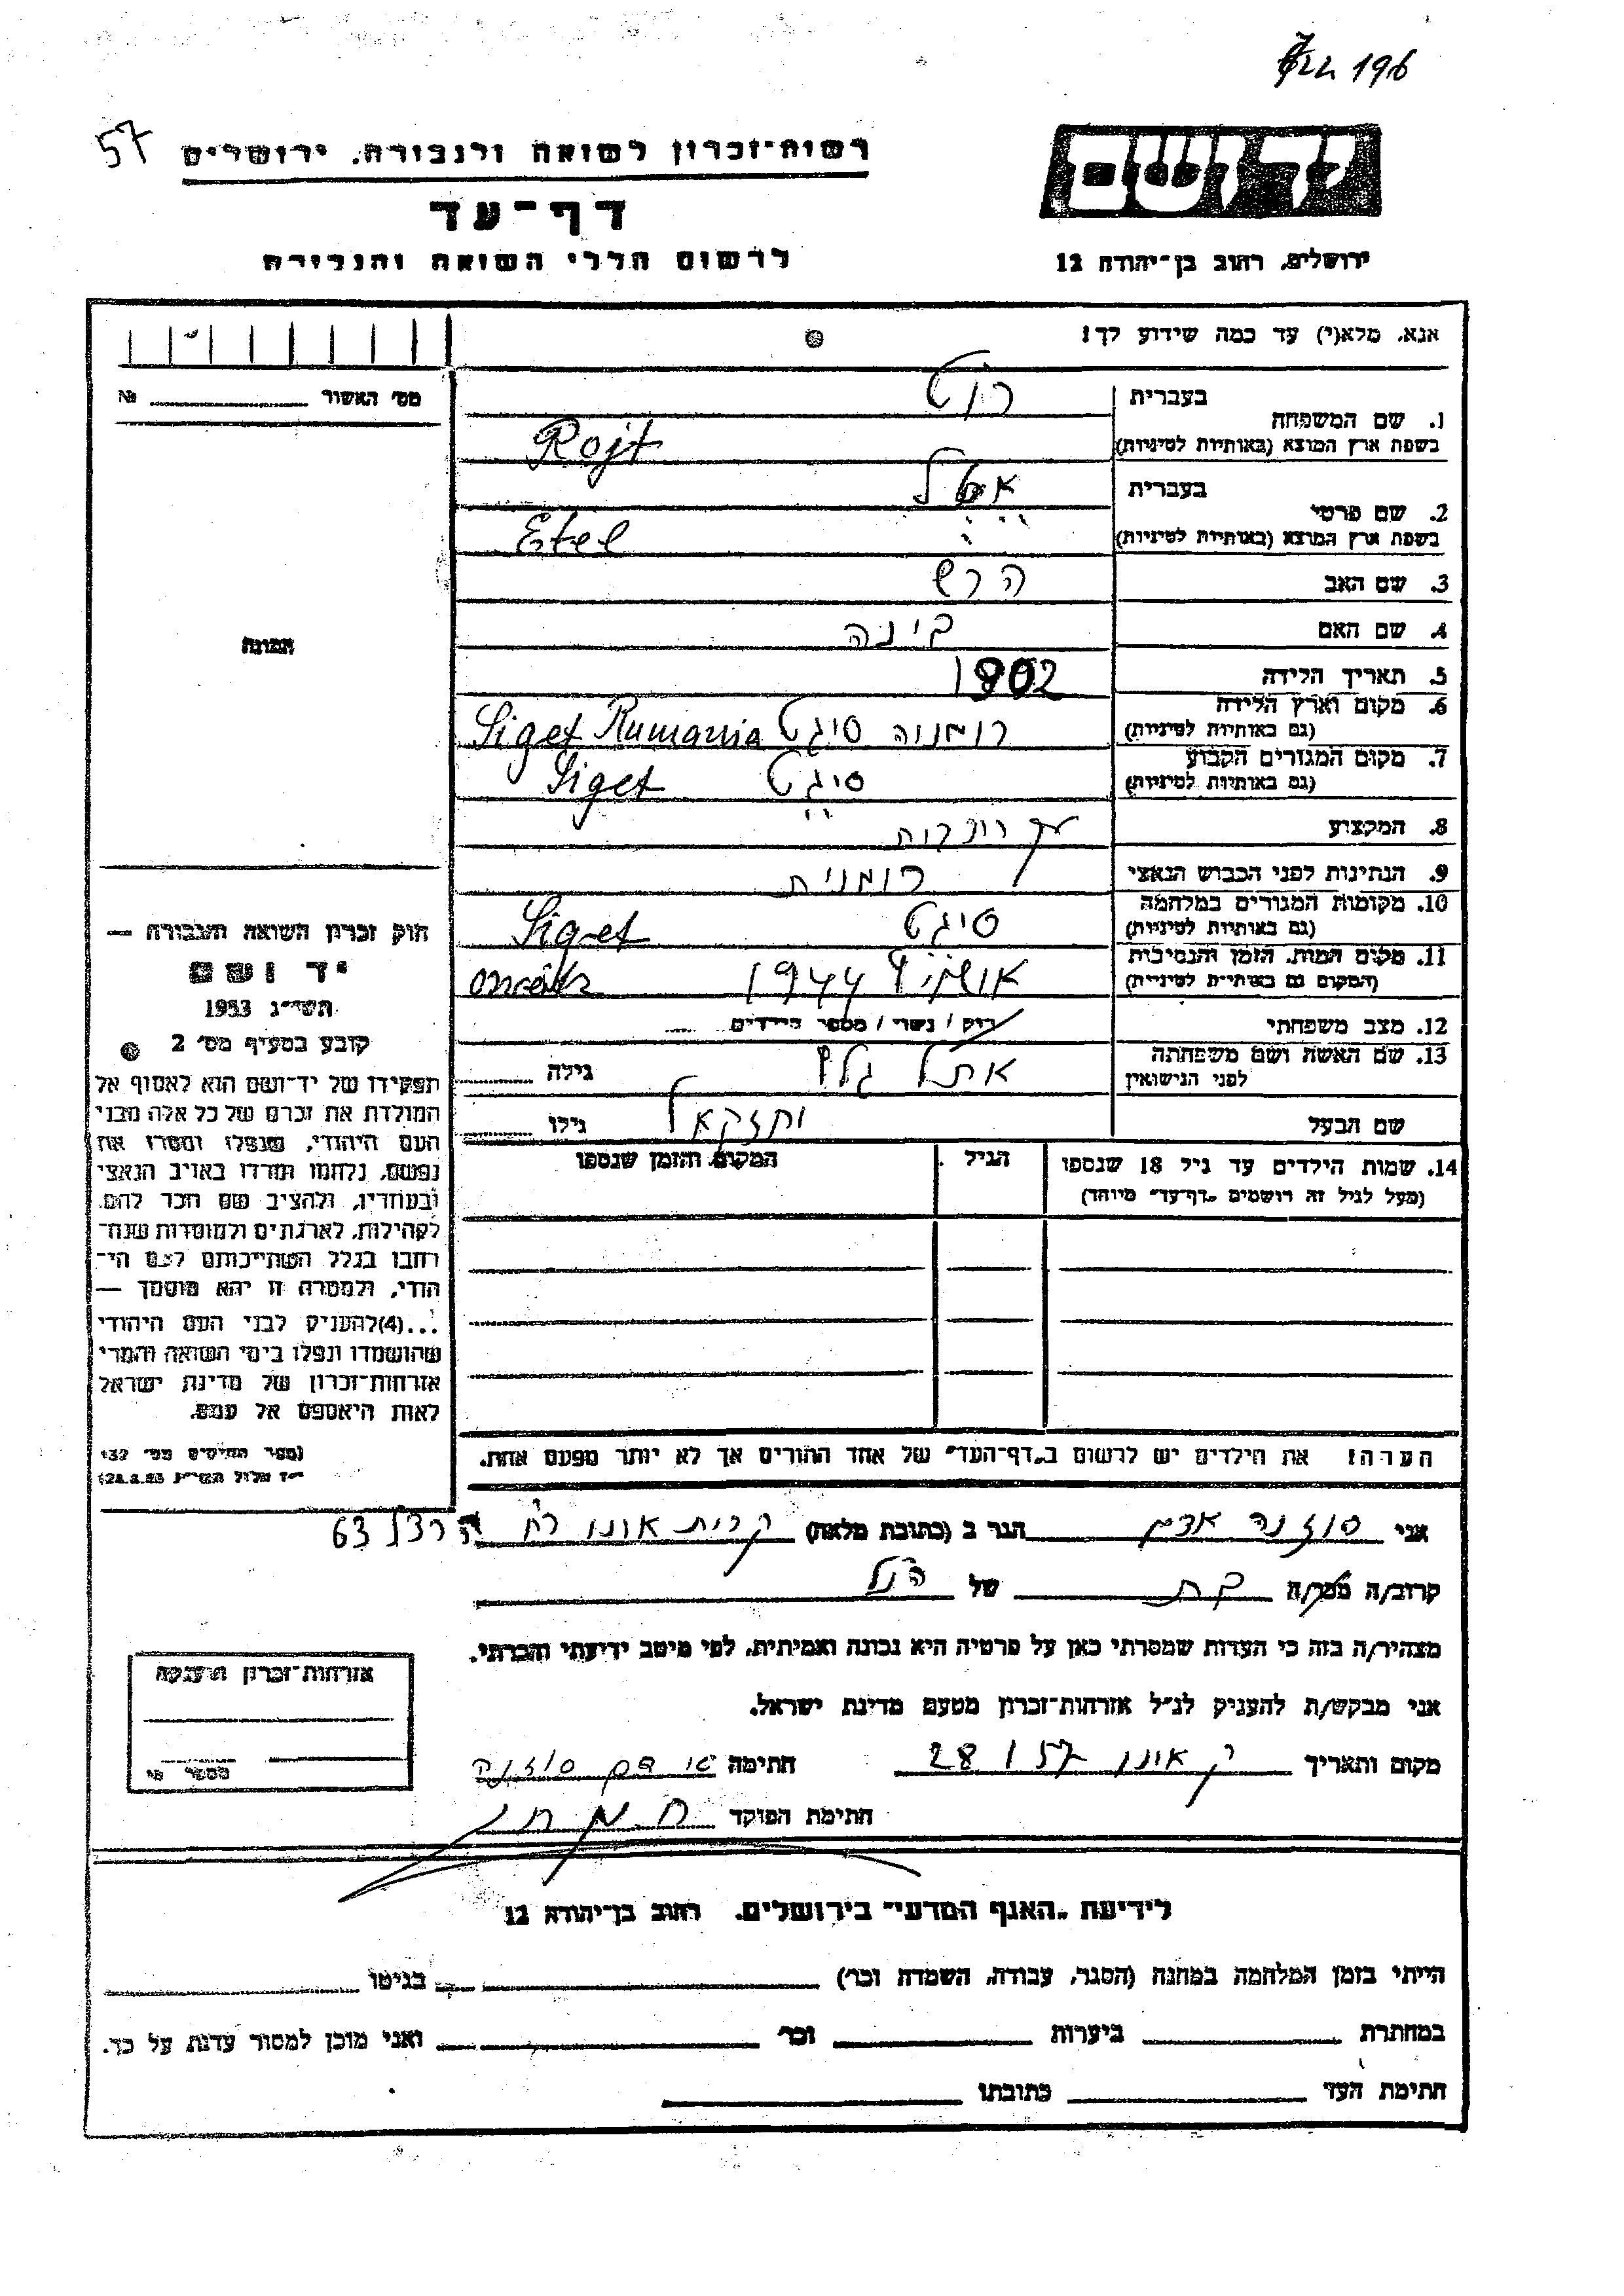 196
57
רשות־זכרון לשואה ולגבורה, ירושלים
דף־עד
לרשום חללי השואה והגבורה
יד ושם
ירושלים, רחוב בן־יהודה 12
אנא, מלא(י) עד כמה שידוע לך!
מס׳ האשור № 
1. שם המשפחה
בעברית רוט
בשפת ארץ המוצא (באותיות לטיניות) Rojt
2. שם פרטי
בעברית אטל
בשפת ארץ המוצא (באותיות לטיניות) Etel
3. שם האב הרש
4. שם האם בינה
5. תאריך הלידה 1902
6. מקום וארץ הלידה
(גם באותיות לטיניות) רומנוה סיגט Siget Rumania
7. מקום המגורים הקבוע
(גם באותיות לטיניות) סיגט Siget
8. המקצוע
9. הנתינות לפני הכבוש הנאצי רומנית
10. מקומות המגורים במלחמה
(גם באותיות לטיניות) סיגט Siget
11. מקום המות, הזמן והנסיבות
(המקום גם באותיות לטיניות) אושויץ 1944
12. מצב משפחתי רוק / נשוי / מספר הילדים
13. שם האשה ושם משפחתה
לפני הנישואין אתל גלץ גילה
שם הבעל יחזקאל גילו
14. שמות הילדים עד גיל 18 שנספו
(מעל לגיל זה רושמים „דף־עד״ מיוחד)
הגיל
המקום והזמן שנספו
הערה! את הילדים יש לרשום ב„דף־העד״ של אחד ההורים אך לא יותר מפעם אחת.
התמונה
חוק זכרון השואה והגבורה —
יד ושם
תשי״ג 1953
קובע בסעיף מס׳ 2
תפקידו של יד־ושם הוא לאסוף אל
המולדת את זכרם של כל אלה מבני
העם היהודי, שנפלו ומסרו את
נפשם, נלחמו ומרדו באויב הנאצי
ובעוזריו, ולהציב שם וזכר להם,
לקהילות, לארגונים ולמוסדות שנח־
רבו בגלל השתייכותם לעם הי־
הודי, ולמטרה זו יהא מוסמך —
...(4)להעניק לבני העם היהודי
שהושמדו ונפלו בימי השואה והמרי
אזרחות־זכרון של מדינת ישראל
לאות היאספם אל עמם.
(ספר החוקים מס׳ 132
י״ז אלול תשי״ג 28.8.53)
אני סוזנה אדם הגר ב (כתובת מלאה) קרית אונו רח הרצל 63
קרוב/ה מכר/ה בת של הנ״ל
מצהיר/ה בזה כי העדות שמסרתי כאן על פרטיה היא נכונה ואמיתית, לפי מיטב ידיעתי והכרתי.
אני מבקש/ת להעניק לנ״ל אזרחות־זכרון מטעם מדינת ישראל.
מקום ותאריך ק אונו 28 1 57 חתימה אדם סוזנה
חתימת הפוקד
אזרחות־זכרון הוענקה
מספר
לידיעת „האגף המדעי״ בירושלים, רחוב בן־יהודה 12
הייתי בזמן המלחמה במחנה (הסגר, עבודה, השמדה וכר׳) בגיטו
במחתרת ביערות וכר׳ ואני מוכן למסור עדות על כך.
חתימת העד כתובתו